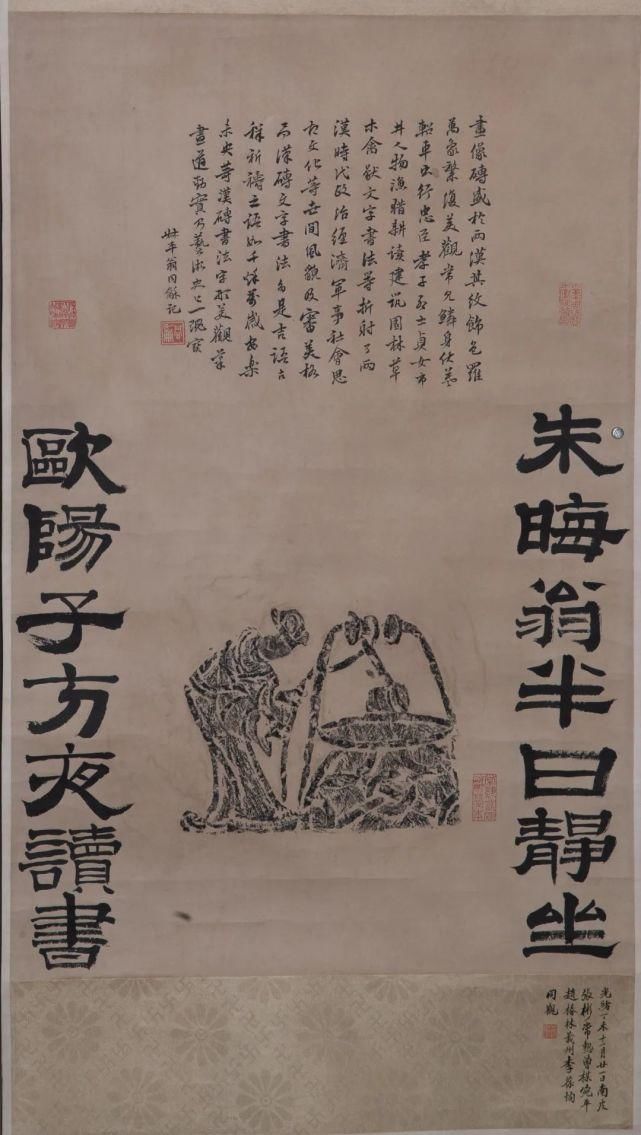 朱晦翁半日靜坐
歐陽子方夜讀書
畫像磚盛於兩漢其紋飾包羅
萬象繁復美觀常見鱗身伏羲
軺車出行忠臣孝子列士貞女市
井人物漁獵耕讀建筑園林草
木禽獸文字書法等折射了兩
漢時代政治經濟軍事社會思
文化等世間風貌及審美格
而漢磚文字書法多是吉語吉
祥祈禱之語如千秋萬歲安樂
未央等漢磚書法字形美觀筆
畫遒勁實乃藝術史之一瑰寶
叔平翁同龢記
光緒丁未十一月廿一日南皮
張彬常熟曾樸宛平
趙椿林義州李葆恂
同觀